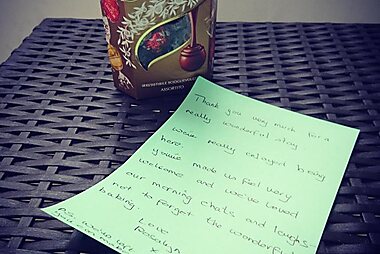 IRRESISTIBILE SCIOGLIEVOLEZZA
ASSORTITO
Thank you very much for a
really wonderful stay.
We've really enjoyed being
here, you've made us feel very
welcome and we've loved
our morning chats and laughs-
not to forget the wonderful
baking.
Love
Rosalyn
x
P.S. we've left